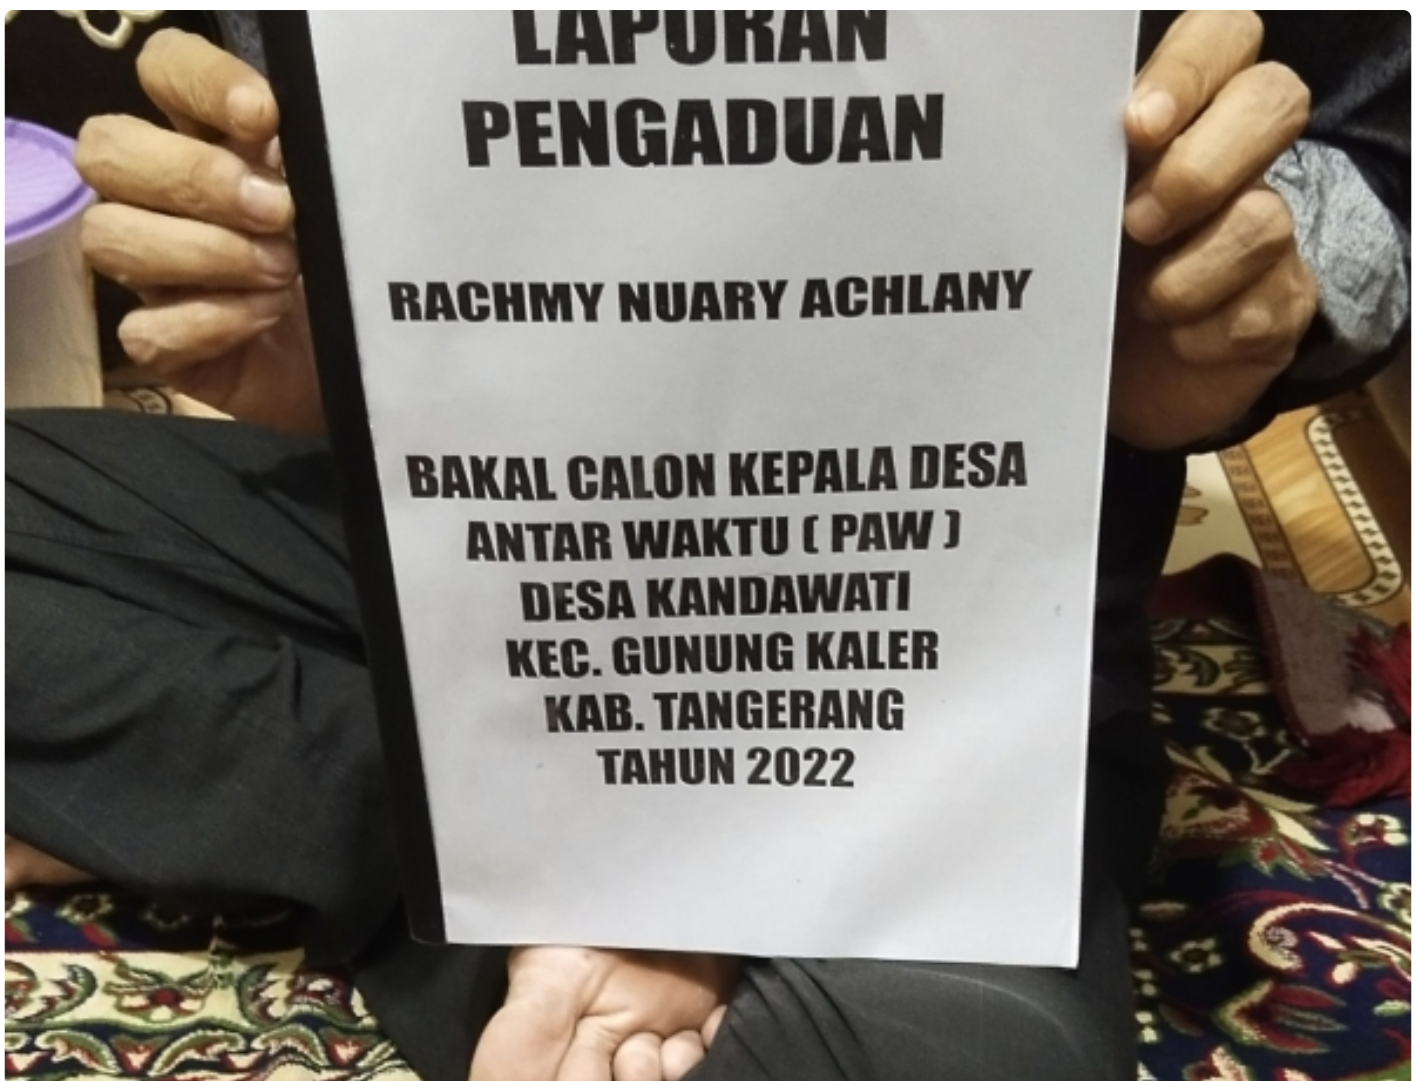 LAPORAN
PENGADUAN
RACHMY NUARY ACHLANY
BAKAL CALON KEPALA DESA
ANTAR WAKTU ( PAW )
DESA KANDAWATI
KEC. GUNUNG KALER
KAB. TANGERANG
TAHUN 2022